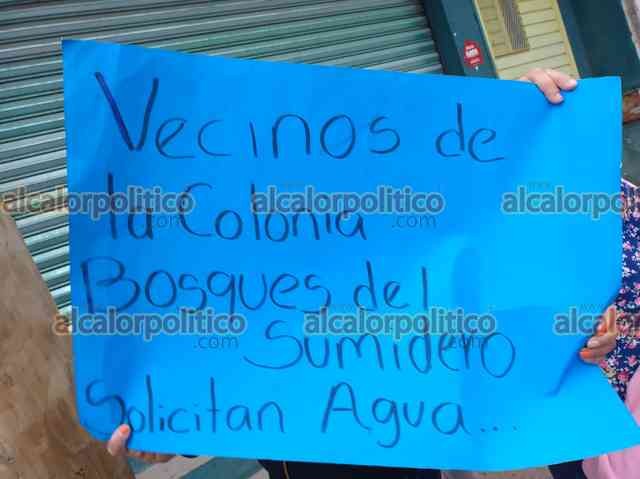 Vecinos de
la Colonia
Bosques del
Sumidero
Solicitan Agua...
alcalorpolitico
.com
alcalorpolitico
.com
alcalorpolitico
alcalorpolitico
.com
alcalorpolitico
.com